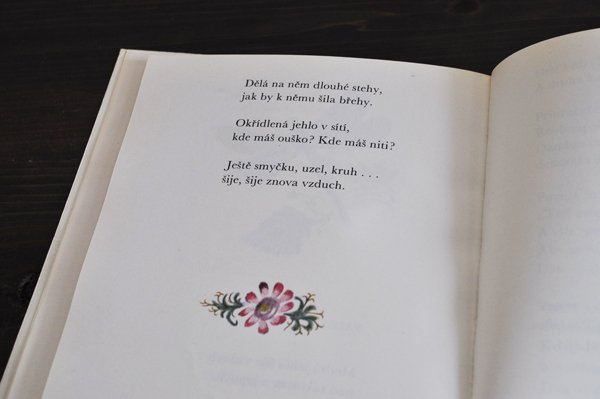 Dělá na něm dlouhé stehy,
jak by k němu šila břehy.
Okřídlená jehlo v sítí,
kde máš ouško? Kde máš niti?
Ještě smyčku, uzel, kruh . . .
šije, šije znova vzduch.